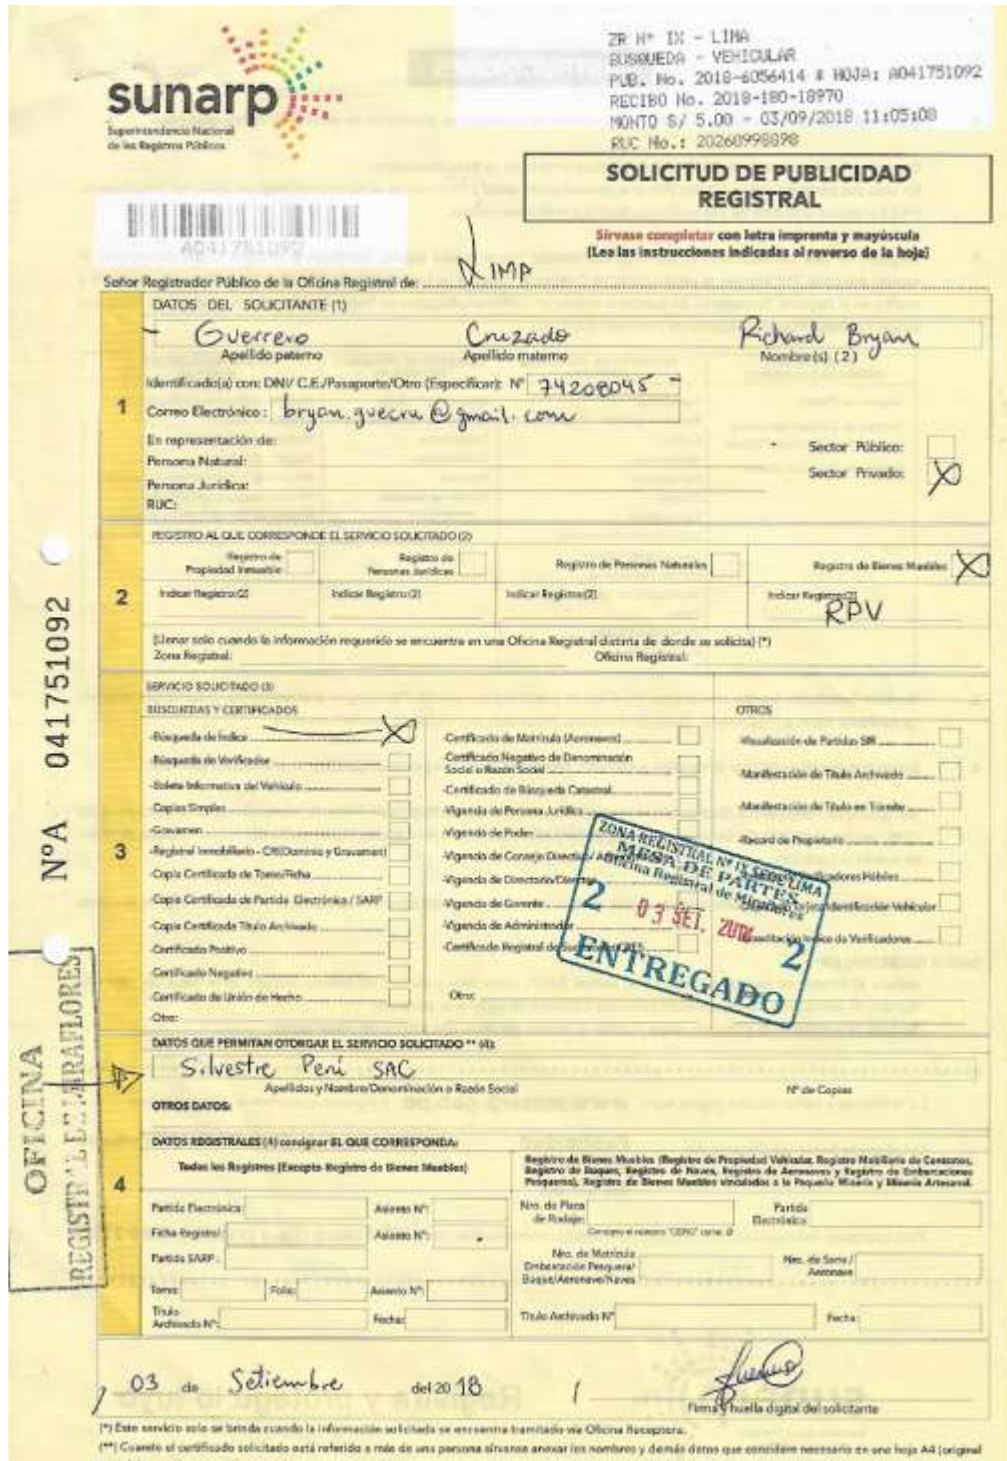 sunarp
Superintendencia Nacional
de los Registros Públicos
ZR Nº IX - LIMA
BUSQUEDA - VEHICULAR
PUB. No. 2018-6056414 # HOJA: A041751092
RECIBO No. 2018-180-18970
MONTO S/ 5.00 - 03/09/2018 11:05:08
RUC No.: 20260998898
SOLICITUD DE PUBLICIDAD
REGISTRAL
A041751092
Sírvase completar con letra imprenta y mayúscula
(Lea las instrucciones indicadas al reverso de la hoja)
Señor Registrador Público de la Oficina Registral de: LIMA
DATOS DEL SOLICITANTE (1)
Guerrero Cruzado Richard Bryan
Apellido paterno Apellido materno Nombre(s) (2)
Identificado(a) con: DNI/ C.E./Pasaporte/Otro (Especificar): Nº 74208045
1
Correo Electrónico: bryan.guecru@gmail.com
En representación de:
Sector Público:
Persona Natural:
Sector Privado: X
Persona Jurídica:
RUC:
REGISTRO AL QUE CORRESPONDE EL SERVICIO SOLICITADO (2)
Registro de Propiedad Inmueble Registro de Personas Jurídicas Registro de Personas Naturales Registro de Bienes Muebles X
2
Indicar Registro:(2) Indicar Registro:(2) Indicar Registro:(2) Indicar Registro:(2)
RPV
(Llenar solo cuando la información requerida se encuentre en una Oficina Registral distinta de donde se solicita) (*)
Zona Registral: Oficina Registral:
SERVICIO SOLICITADO (3)
BÚSQUEDAS Y CERTIFICADOS
-Búsqueda de Índice X
-Búsqueda de Verificador
-Boleta Informativa del Vehículo
-Copias Simples
-Gravamen
3
-Registral Inmobiliario - CRI(Dominio y Gravamen)
-Copia Certificada de Tomo/Ficha
-Copia Certificada de Partida Electrónica / SARP
-Copia Certificada Título Archivado
-Certificado Positivo
-Certificado Negativo
-Certificado de Unión de Hecho
-Otro:
-Certificado de Matrícula (Aeronaves)
-Certificado Negativo de Denominación
Social o Razón Social
-Certificado de Búsqueda Catastral
-Vigencia de Persona Jurídica
-Vigencia de Poder
-Vigencia de Consejo Directivo
-Vigencia de Directorio/Director
-Vigencia de Gerente
-Vigencia de Administrador
-Certificado Registral de
Otro:
OTROS
-Visualización de Partidas SIR
-Manifestación de Título Archivado
-Manifestación de Título en Trámite
-Record de Propietario
Verificadores Hábiles
Tarjeta Identificación Vehicular
Índice de Verificadores
ZONA REGISTRAL Nº IX SEDE LIMA
MESA DE PARTES
Oficina Registral de Miraflores
2 03 SET. 2018 2
ENTREGADO
Nº A 041751092
OFICINA
REGISTRAL DE MIRAFLORES
DATOS QUE PERMITAN OTORGAR EL SERVICIO SOLICITADO ** (4):
Silvestre Perú SAC
Apellidos y Nombre/Denominación o Razón Social Nº de Copias
OTROS DATOS:
DATOS REGISTRALES (4) consignar EL QUE CORRESPONDA:
Todos los Registros (Excepto Registro de Bienes Muebles)
Registro de Bienes Muebles (Registro de Propiedad Vehicular, Registro Mobiliario de Contratos,
Registro de Buques, Registro de Naves, Registro de Aeronaves y Registro de Embarcaciones
Pesqueras), Registro de Bienes Muebles vinculados a la Pequeña Minería y Minería Artesanal.
4
Partida Electrónica: Asiento Nº:
Ficha Registral: Asiento Nº:
Partida SARP:
Tomo: Folio: Asiento Nº:
Título
Archivado Nº: Fecha:
Nro. de Placa
de Rodaje: Partida
Electrónica
Consigne el número "CERO" como Ø
Nro. de Matrícula
Embarcación Pesquera/
Buque/Aeronave/Naves
Nro. de Serie/
Aeronave
Título Archivado Nº Fecha:
03 de Setiembre del 2018
Firma y huella digital del solicitante
(*) Este servicio solo se brinda cuando la información solicitada se encuentra tramitado vía Oficina Receptora.
(**) Cuando el certificado solicitado está referido a más de una persona sírvanse anexar los nombres y demás datos que considere necesario en una hoja A4 (original